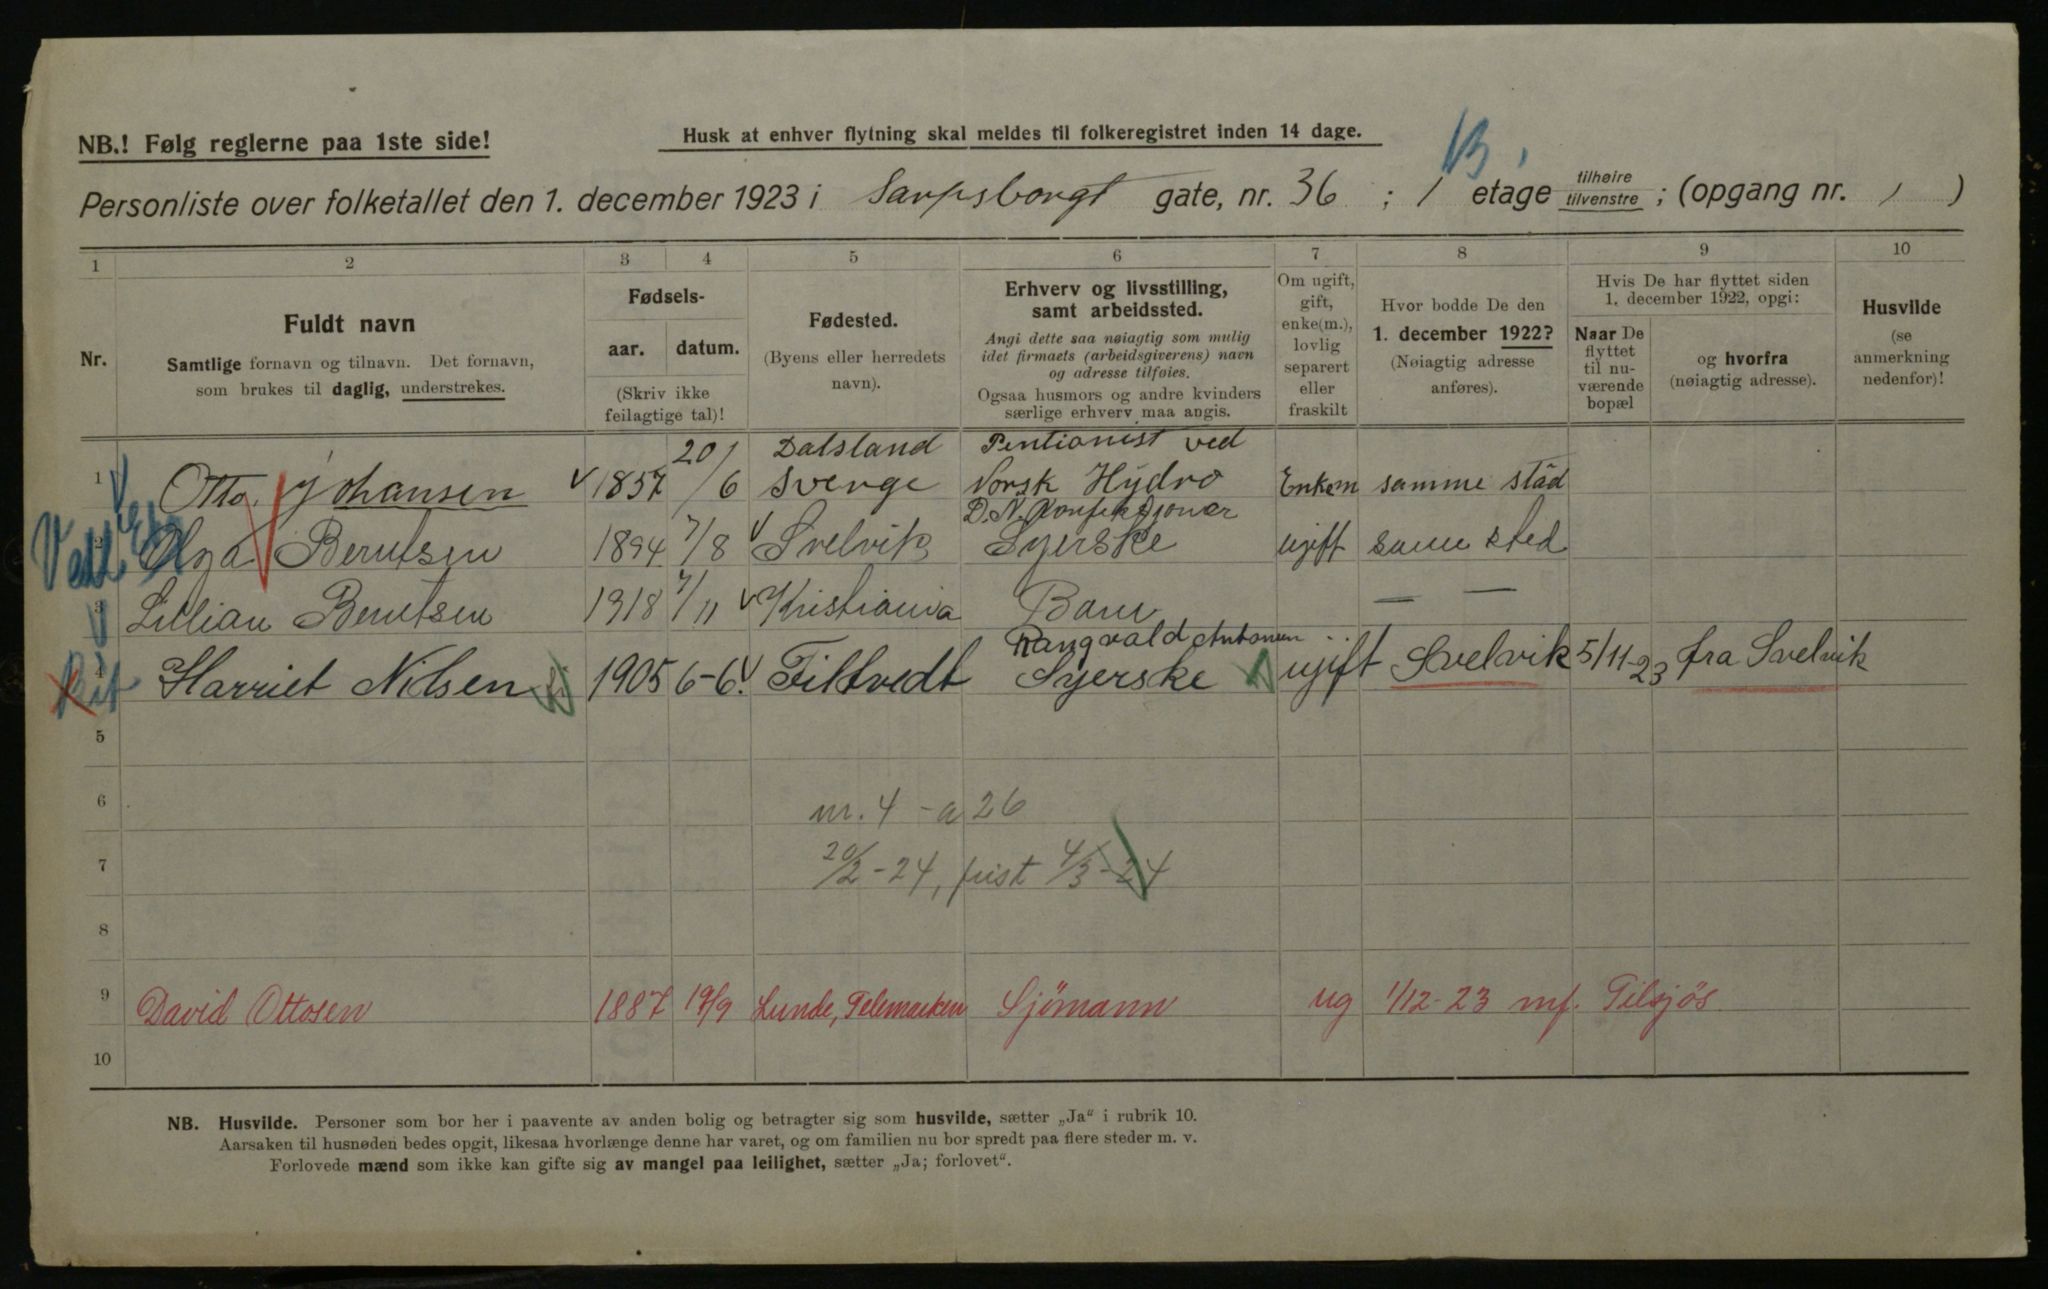 NB.! Følg reglerne paa 1ste side!
Husk at enhver flytning skal meldes til folkeregistret inden 14 dage.
B.
Personliste over folketallet den 1. december 1923 i Sarpsborgt gate, nr. 36 ; 1 etage tilhøire tilvenstre ; (opgang nr. 1 )
1 2 3 4 5 6 7 8 9 10
Nr.
Fuldt navn
Samtlige fornavn og tilnavn. Det fornavn,
som brukes til daglig, understrekes.
Fødsels-
aar. datum.
(Skriv ikke
feilagtige tal)!
Fødested.
(Byens eller herredets
navn).
Erhverv og livsstilling,
samt arbeidssted.
Angi dette saa nøiagtig som mulig
idet firmaets (arbeidsgiverens) navn
og adresse tilføies.
Ogsaa husmors og andre kvinders
særlige erhverv maa angis.
Om ugift,
gift,
enke(m.),
lovlig
separert
eller
fraskilt
Hvor bodde De den
1. december 1922?
(Nøiagtig adresse
anføres).
Hvis De har flyttet siden
1. december 1922, opgi:
Naar De
flyttet
til nu-
værende
bopæl
og hvorfra
(nøiagtig adresse).
Husvilde
(se
anmerkning
nedenfor)!
20/ Dalsland Pentionist ved
1 Otto Johansen 1857 /6 Sverge Norsk Hydro Enkem samme städ
D. N.
2 Olga Berntsen 1894 7/8 Svelvik Syerske ugift samme sted
3 Lillian Berntsen 1918 7/11 Kristiania Barn — —
Rangvald Antonsen
4 Harriet Nilsen 1905 6-6. Filtvedt Syerske ugift Svelvik 5/11-23 fra Svelvik
5
6 nr. 4 - a 26
7 20/2-24, frist 4/3-24
8
9 David Ottosen 1887 19/9 Lunde, Telemarken Sjömann ug 1/12-23 mf. Tilsjøs
10
NB. Husvilde. Personer som bor her i paavente av anden bolig og betragter sig som husvilde, sætter „Ja“ i rubrik 10.
Aarsaken til husnøden bedes opgit, likesaa hvorlænge denne har varet, og om familien nu bor spredt paa flere steder m. v.
Forlovede mænd som ikke kan gifte sig av mangel paa leilighet, sætter „Ja; forlovet“.